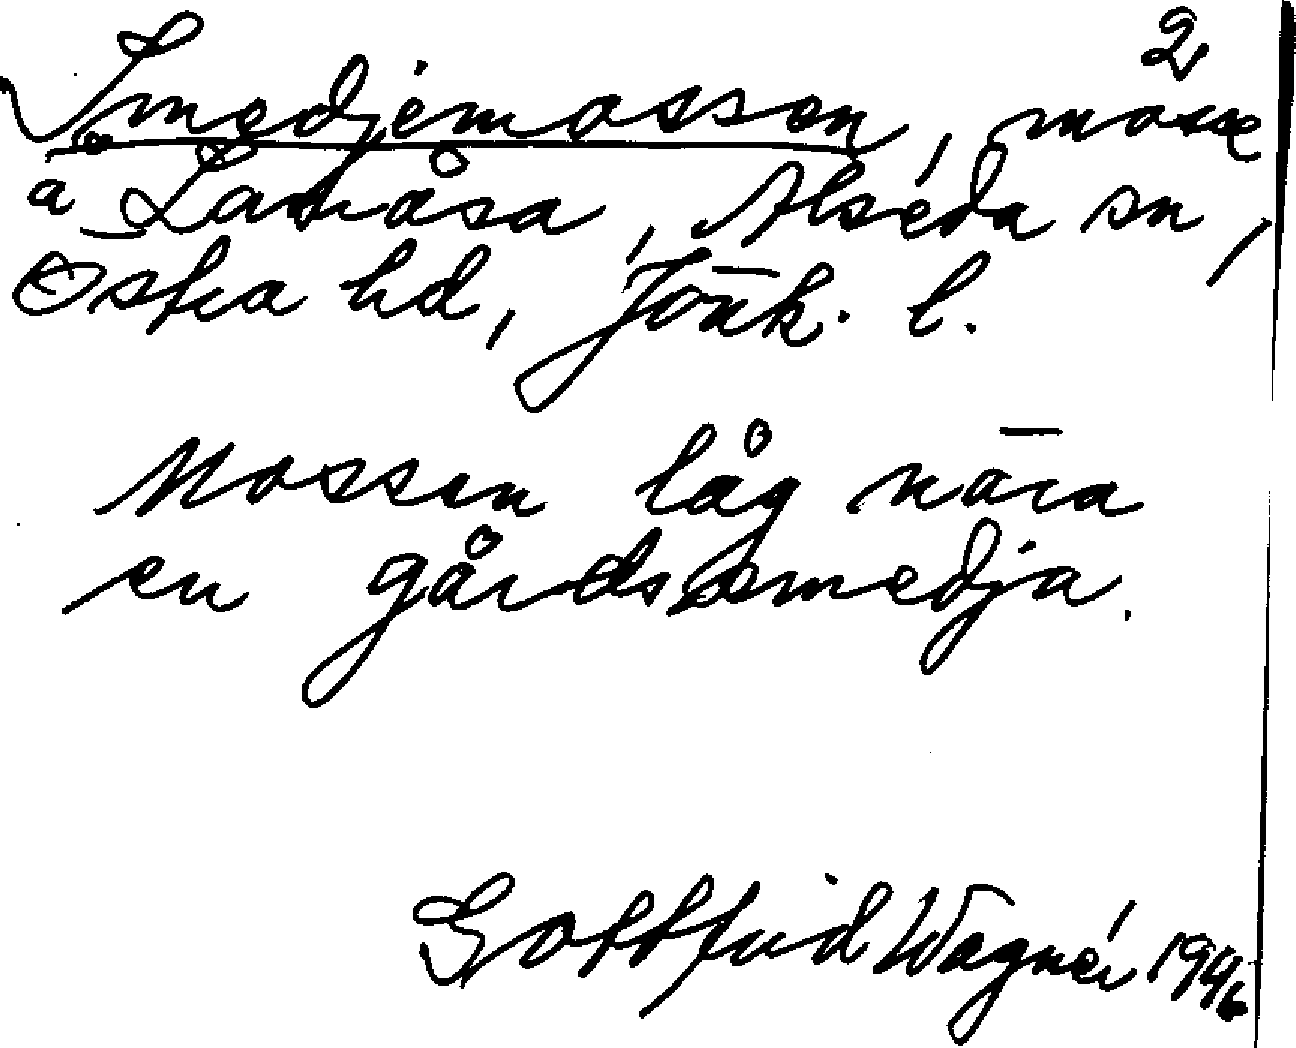 2
Smedjemossen, mosse
å Lamåsa, Alseda sn,
Östra hd, Jönk. l.
Mossen låg nära
en gårdssmedja.
Gottfrid Wagnér 1946